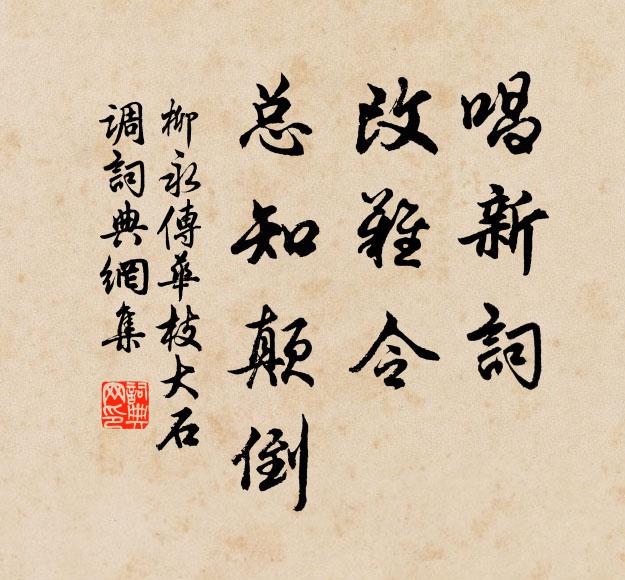 唱新詞
改難令
总知颠倒
柳永傳華枝大石
调詞典網集
詞典網印